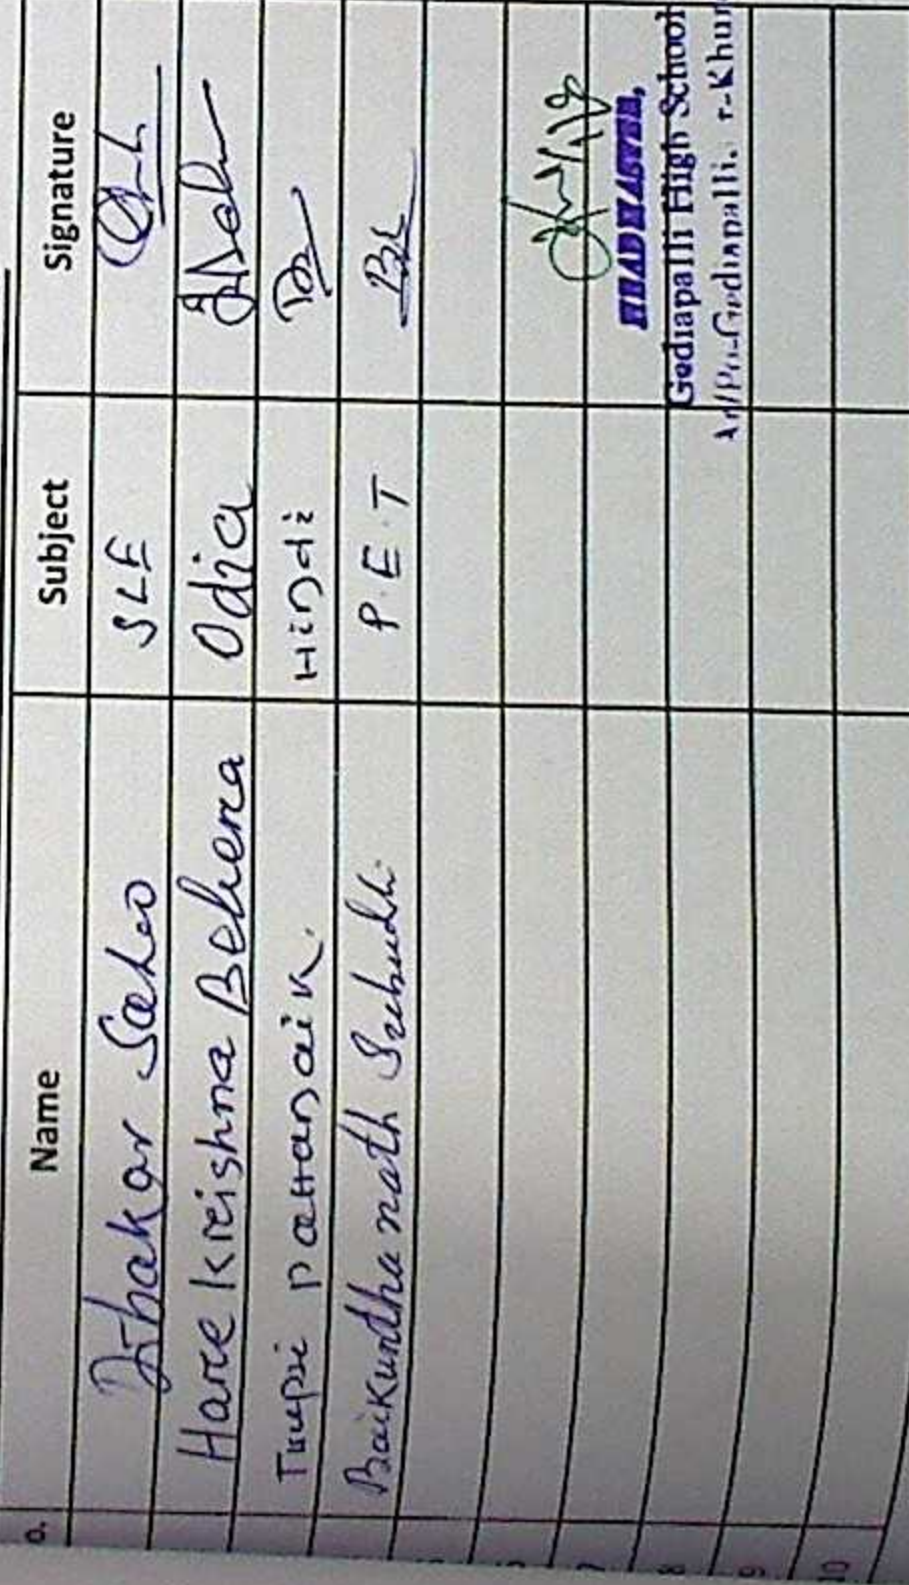 Name Subject Signature
Sahoo SLE
Harekrishna Behera Odia
Pattanaik Hindi
Baikunthanath P.E.T
HEADMASTER,
Gediapalli High School
At/Po-Gediapalli.
7
8
9
10